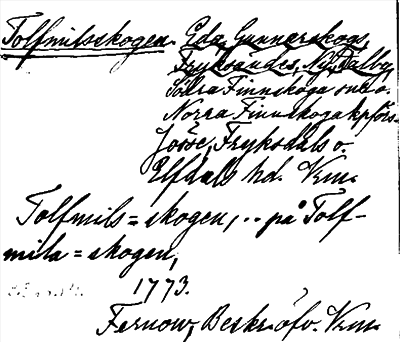 Tolfmilsskogen. Eda, Gunnarskogs,
Fryksändes, Ny, Dalby,
Södra Finnskoga snr o.
Norra Finnskoga kpförs.
Jösse, Fryksdals o.
Elfdals hd. Vrm.
Tolfmils=skogen, .. på Tolf-
mila=skogen,
1773.
Fernow, Beskr. öfv. Vrm.